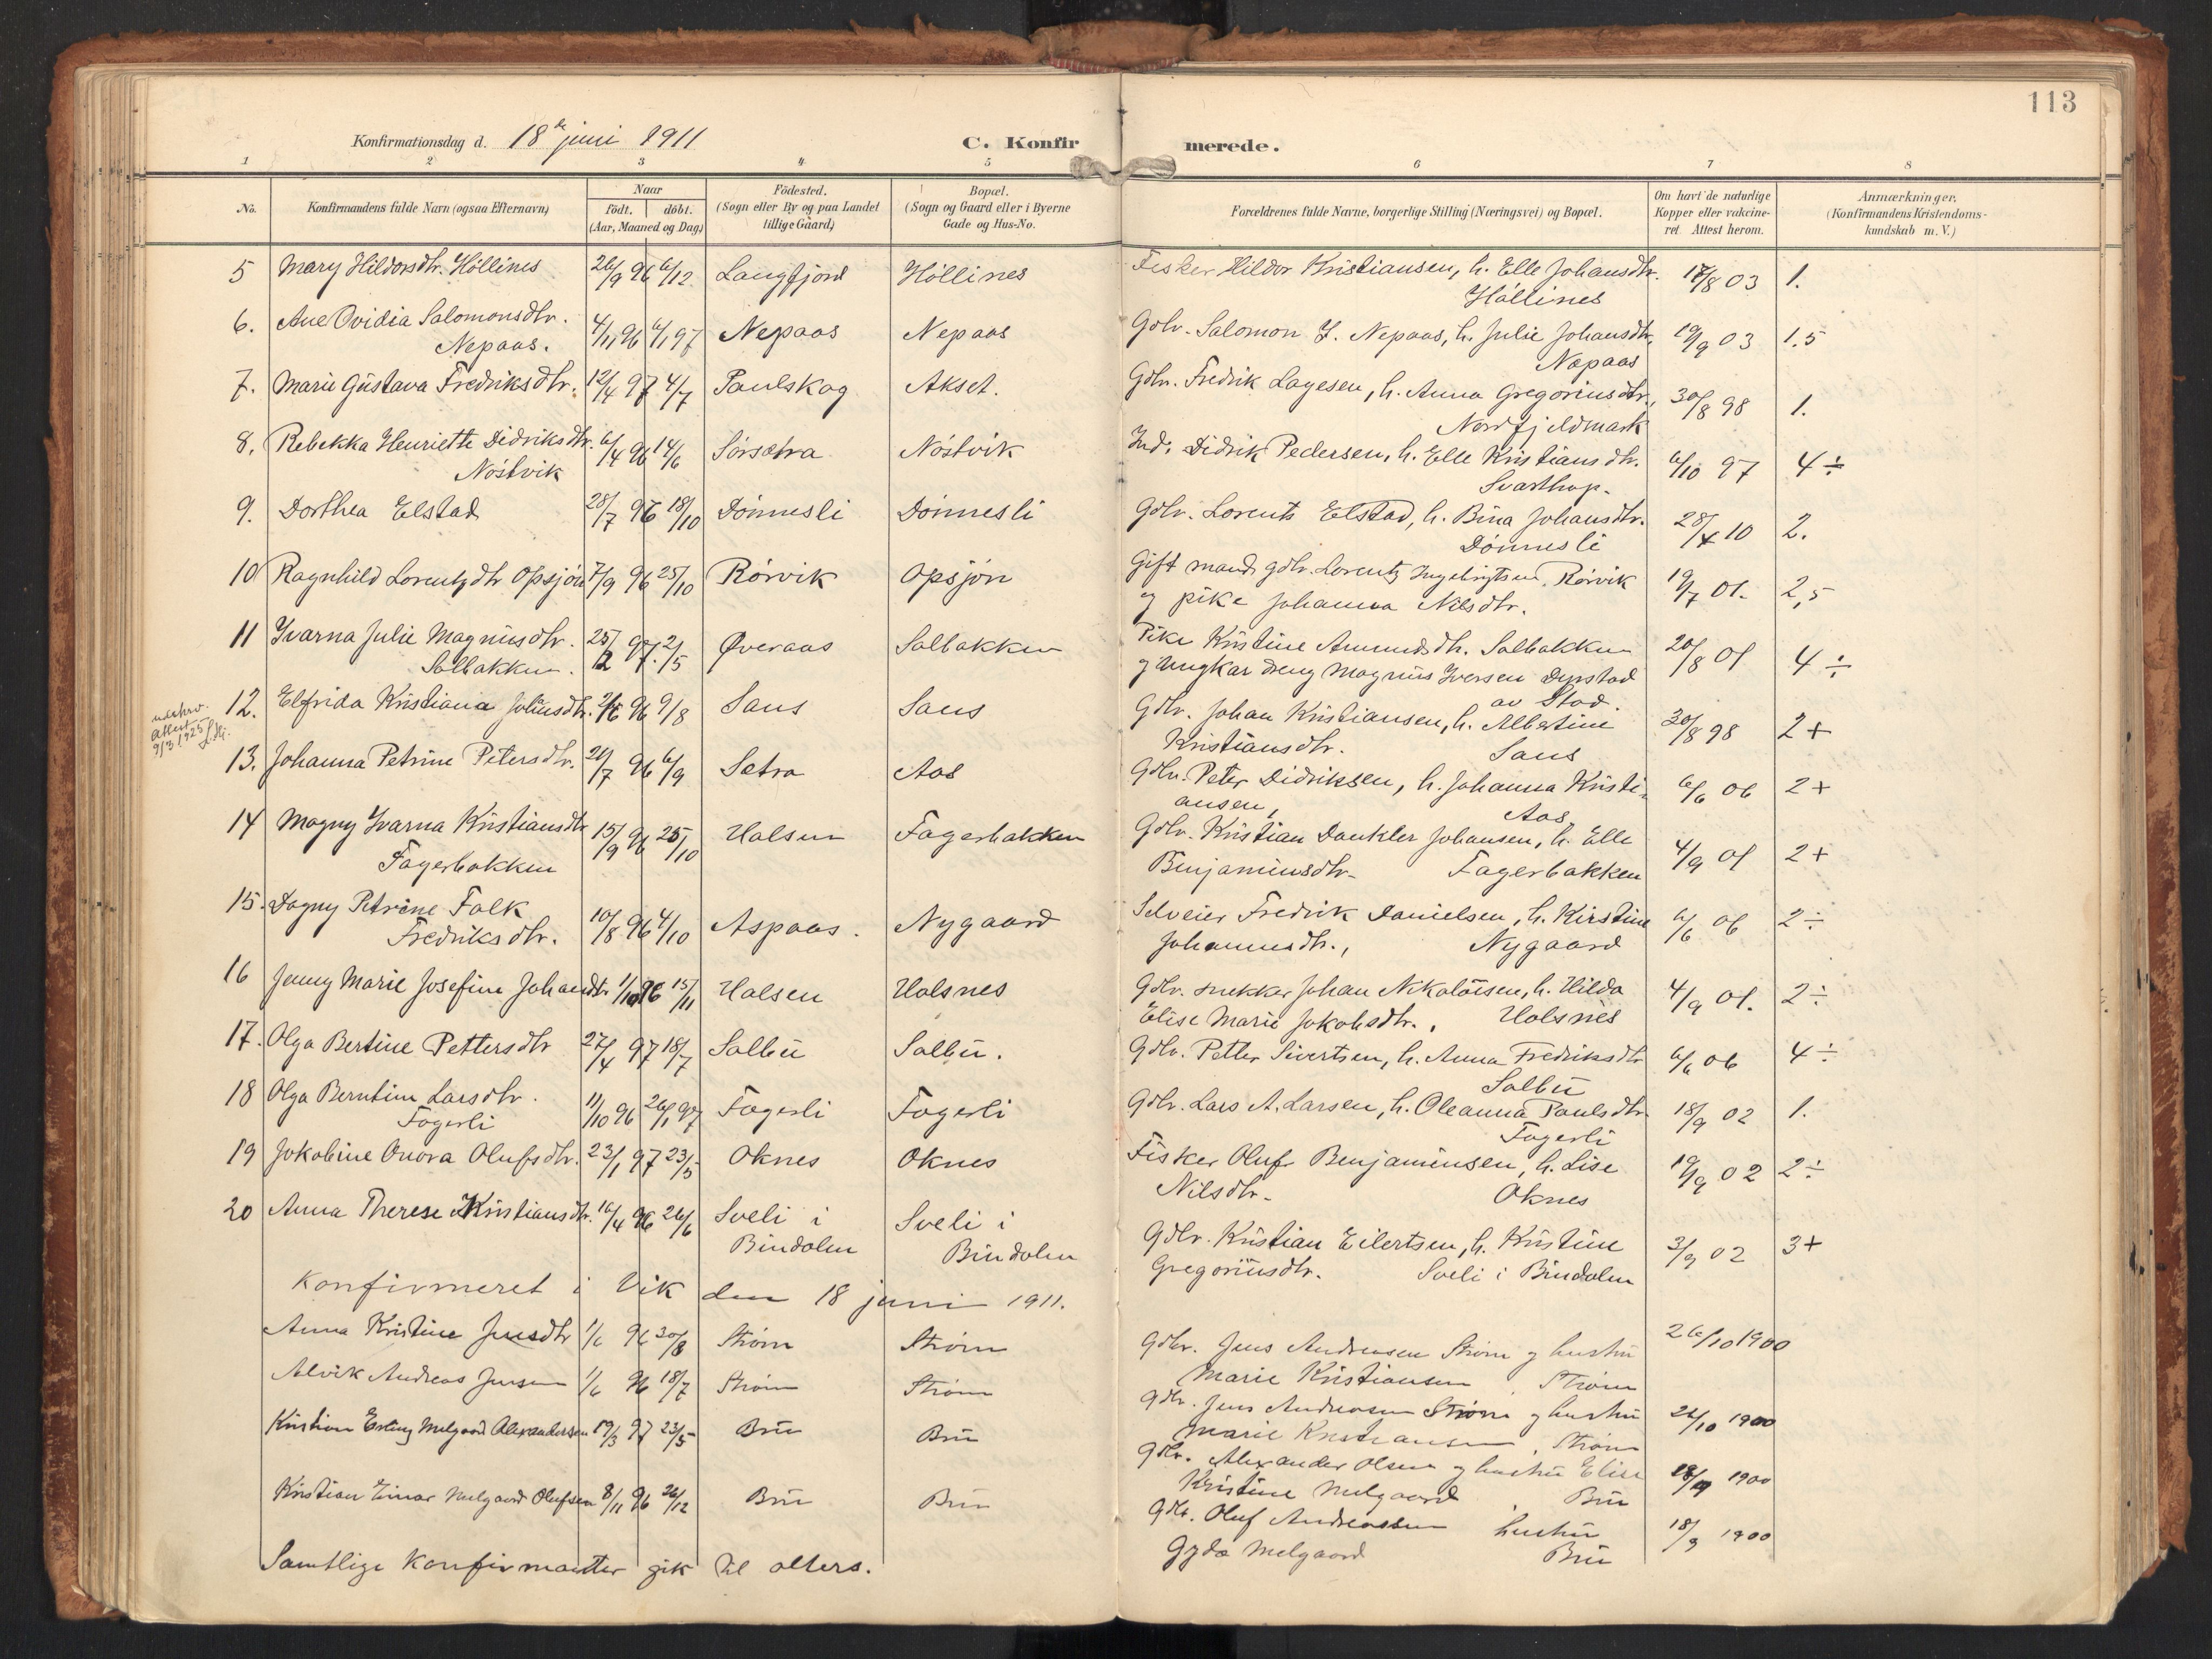 113
Konfirmationsdag d. 18de juni 1911 C. Konfir merede.
1 2 3 4 5 6 7 8
No. Konfirmandens fulde Navn (ogsaa Efternavn) Naar født. døbt. (Aar, Maaned og Dag) Fødested. (Sogn eller By og paa Landet tillige Gaard) Bopæl. (Sogn og Gaard eller i Byerne Gade og Hus-No. Forældrenes fulde Navne, borgerlige Stilling (Næringsvei) og Bopæl. Om havt de naturlige Kopper eller vakcineret. Attest herom. Anmærkninger, (Konfirmandens Kristendomskundskab m. V.)
5 Mary Hildorsdtr. Höllines 26/9 96 6/12 Langfjord Höllines Fisker Hildor Kristiansen, h. Elle Johansdtr. 17/8 03 1.
Höllines
6. Ane Ovidia Salomonsdtr. 4/11 96 6/1 97 Nepaas Nepaas Gdbr. Salomon J. Nepaas, h. Julie Johansdtr, 19/9 03 1.5
Nepaas. Nepaas
7. Marie Gustava Fredriksdtr. 12/4 97 4/7 Paulskog Akset. Gdbr. Fredrik Lagesen, h. Anna Gregoriusdtr., 30/8 98 1.
Nordfjeldmark
8. Rebekka Henriette Didriksdtr. 6/4 96 14/6 Sörsætra Nöstvik Ind. Didrik Pedersen, h. Elle Kristiansdtr. 6/10 97 4 ÷
Nöstvik Svarthop.
9. Dorthea Elstad 28/7 96 18/10 Dönnesli Dönnesli Gdbr. Lorents Elstad, h. Bina Johansdtr. 28/4 10 2.
Dönnesli
10 Ragnhild Lorentzdtr Opsjön 7/9 96 25/10 Rörvik Opsjön Gift mand gdbr. Lorentz Ingebrigtsen, Rörvik 19/7 01. 2,5
og pike Johanna Nilsdtr.
11 Ivarna Julie Magnusdtr. 25/12 97. 2/5 Øveraas Salbakken Pike Kristine Amundsdtr. Salbakken 20/8 01 4 ÷
Salbakken. og ungkar dreng Magnus Iversen Dypstad
av Stad.
12. Elfrida Kristiana Johansdtr. 2/6 96 9/8 Saus Saus Gdbr. Johan Kristiansen, h. Albertine 30/8 98 2+
attest 9/3 1925
Kristiansdtr. Saus
13. Johanna Petrine Petersdtr. 21/7 96 6/9 Setra Aas Gdbr. Peter Didriksen, h. Johanna Kristi- 6/6 06 2+
ansen, Aas
14 Magny Ivarna Kristiansdtr 15/9 96 25/10 Halsen Fagerbakken Gdbr. Kristian Dankler Johansen, h. Elle 4/9 01 2+
Fagerbakken Benjaminsdtr. Fagerbakken
15. Dagny Petrine Falk 10/8 96 4/10 Aspaas. Nygaard Selveier Fredrik Danielsen, h. Kirstine 6/6 06 2÷
Fredriksdtr. Johannesdtr., Nygaard
16 Jenny Marie Josefine Johansdtr 1/10 96 15/11 Halsen Halsnes Gdbr. snekker Johan Nikolaisen, h. Hilda 4/9 01. 2÷
Elise Marie Jakobsdtr., Halsnes
17. Olga Bertine Pettersdtr 27/4 97 18/7 Salbu Salbu. Gdbr. Petter Sivertsen, h. Anna Fredriksdtr 6/6 06 4÷
Salbu
18 Olga Berntine Larsdtr. 11/10 96 26/1 97 Fagerli Fagerli Gdbr. Lars A. Larsen, h. Oleanna Paulsdtr. 18/9 02 1.
Fagerli Fagerli
19 Jakobine Onora Olufsdtr. 23/1 97 23/5 Oknes Oknes Fisker Oluf Benjaminsen, h. Lise 19/9 02 2÷
Nilsdtr. Oknes
20 Anna Therese Kristiansdtr. 16/4 96 26/6 Sveli i Sveli i Gdbr. Kristian Eilertsen, h. Kristine 3/9 02 3+
Bindalen Bindalen Gregoriusdtr. Sveli i Bindalen
Konfirmeret i Vik den 18 juni 1911.
Anna Kristine Jensdtr 1/6 96 30/8 Strøm Strøm Gdbr. Jens Andreasen Strøm og hustru 26/10 1900
Marie Kristiansen, Strøm
Alvik Andreas Jensen 1/6 96 18/7 Strøm Strøm Gdbr. Jens Andreasen Strøm og hustru 26/10 1900
Marie Kristiansen, Strøm
Kristian Erling Melgaard Alexandersen 19/3 97 23/5 Bru Bru Gdbr. Alexander Olsen og hustru Elise 18/9 1900
Kristine Melgaard, Bru
Kristian Einar Melgaard Olufsen 8/11 96 26/12 Bru Bru Gdbr. Oluf Andreassen hustru 18/9 1900
Gyda Melgaard Bru
Samtlige konfirmanter gik til alters.